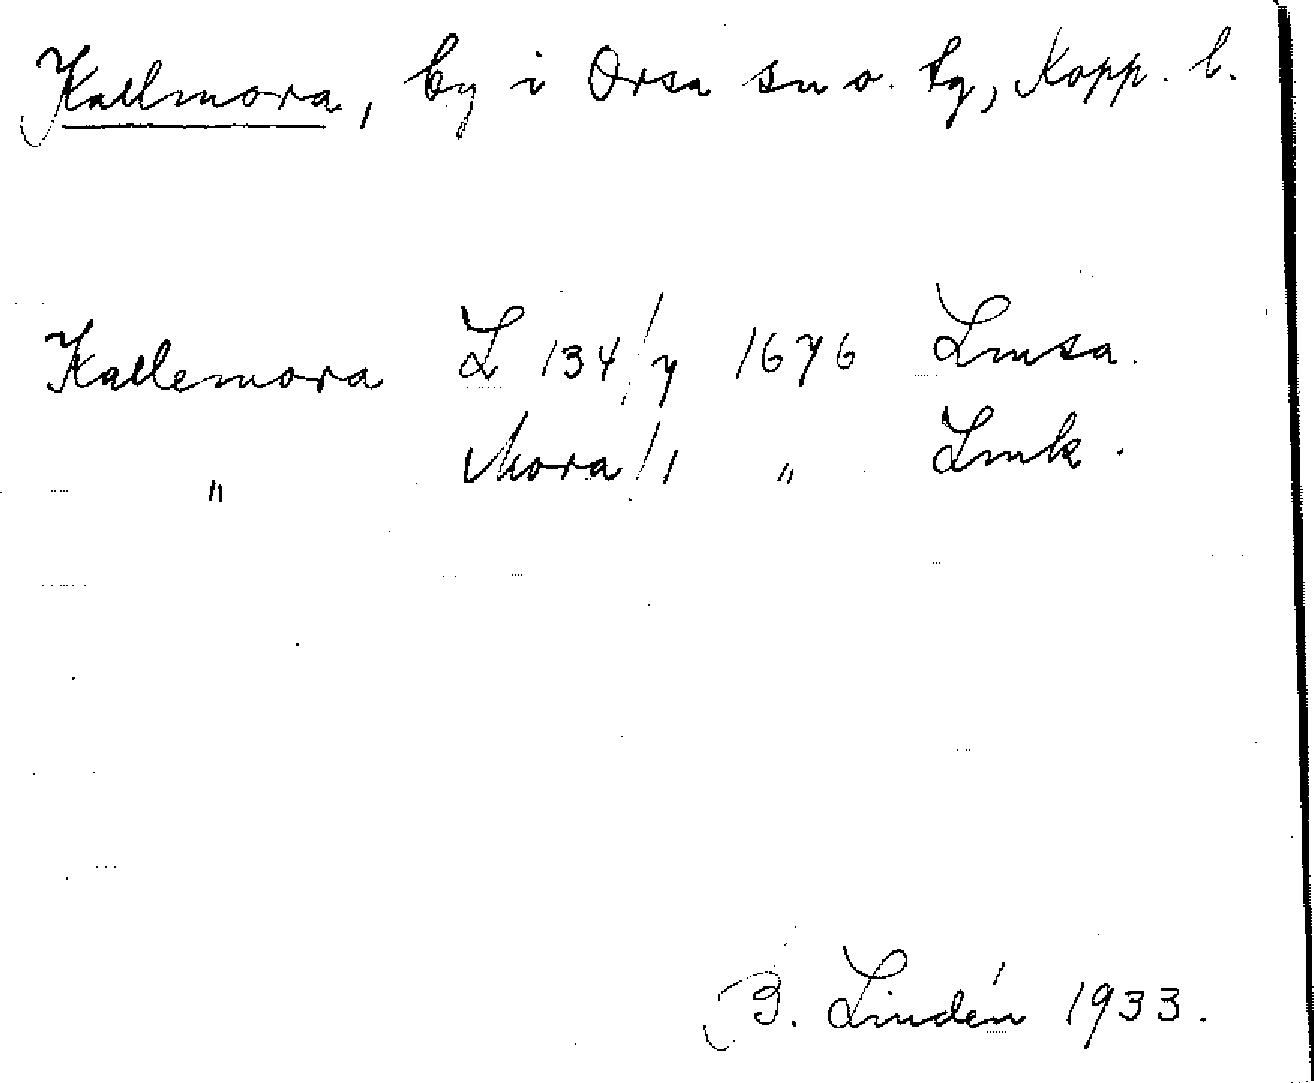 Kallmora, by i Orsa sn o. tg, Kopp. l.
Kallemora L 134/7 1676 Lmsa.
" Mora/1 " Lmk.
B. Lindén 1933.